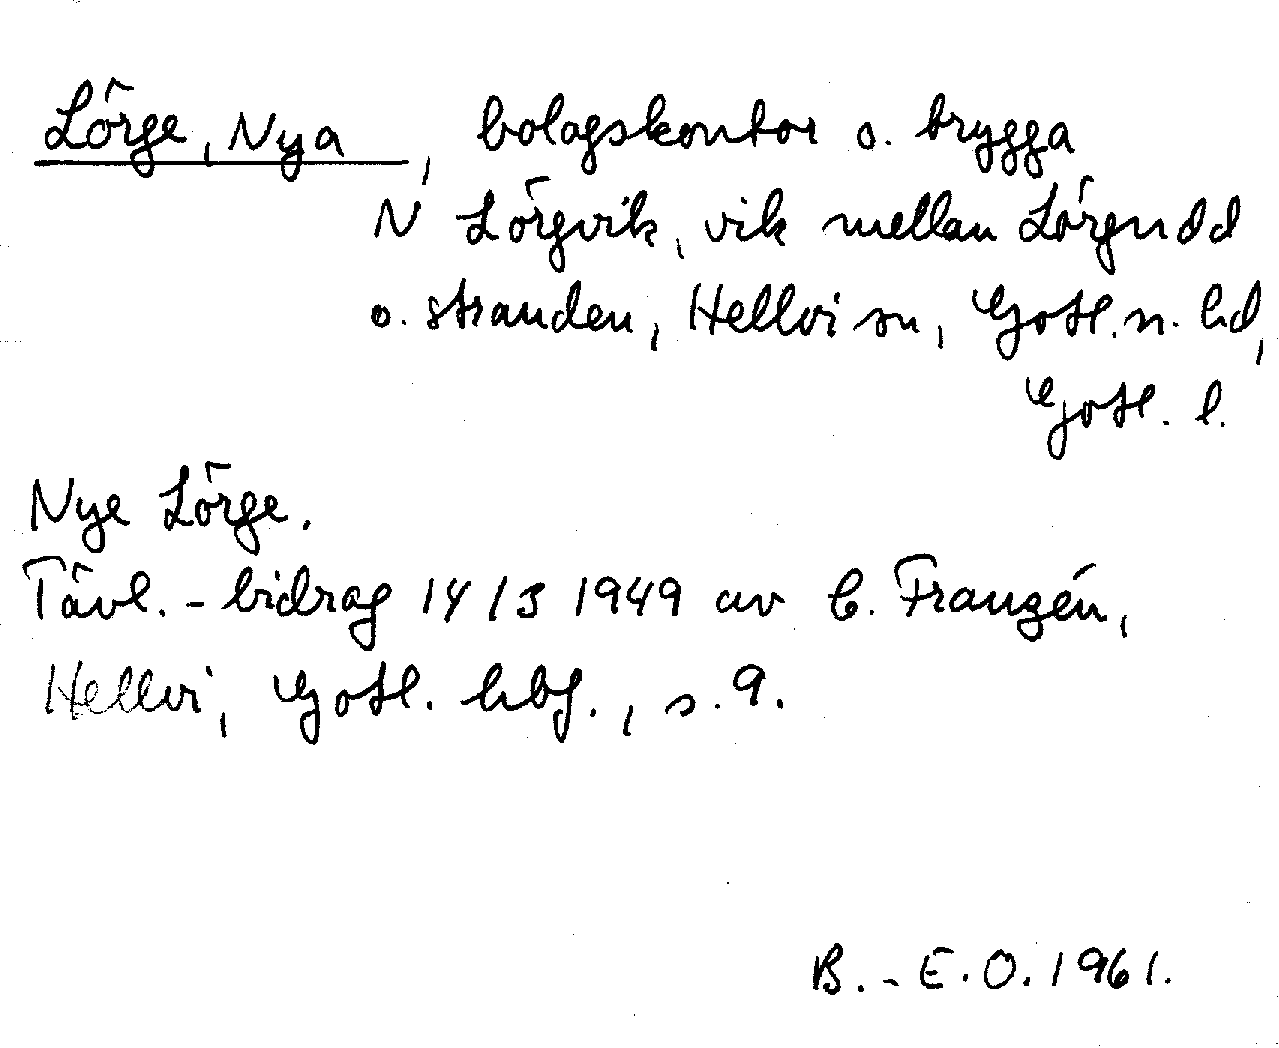 Lörge, Nya, bolagskontor o. brygga
N Lörgvik, vik mellan Lörgudd
o. stranden, Hellvi sn, Gotl. n. hd,
Gotl. l.
Nye Lörge.
Tävl.-bidrag 14/3 1949 av C. Franzén,
Hellvi, Gotl. hbf., s. 9.
B.-E.O. 1961.